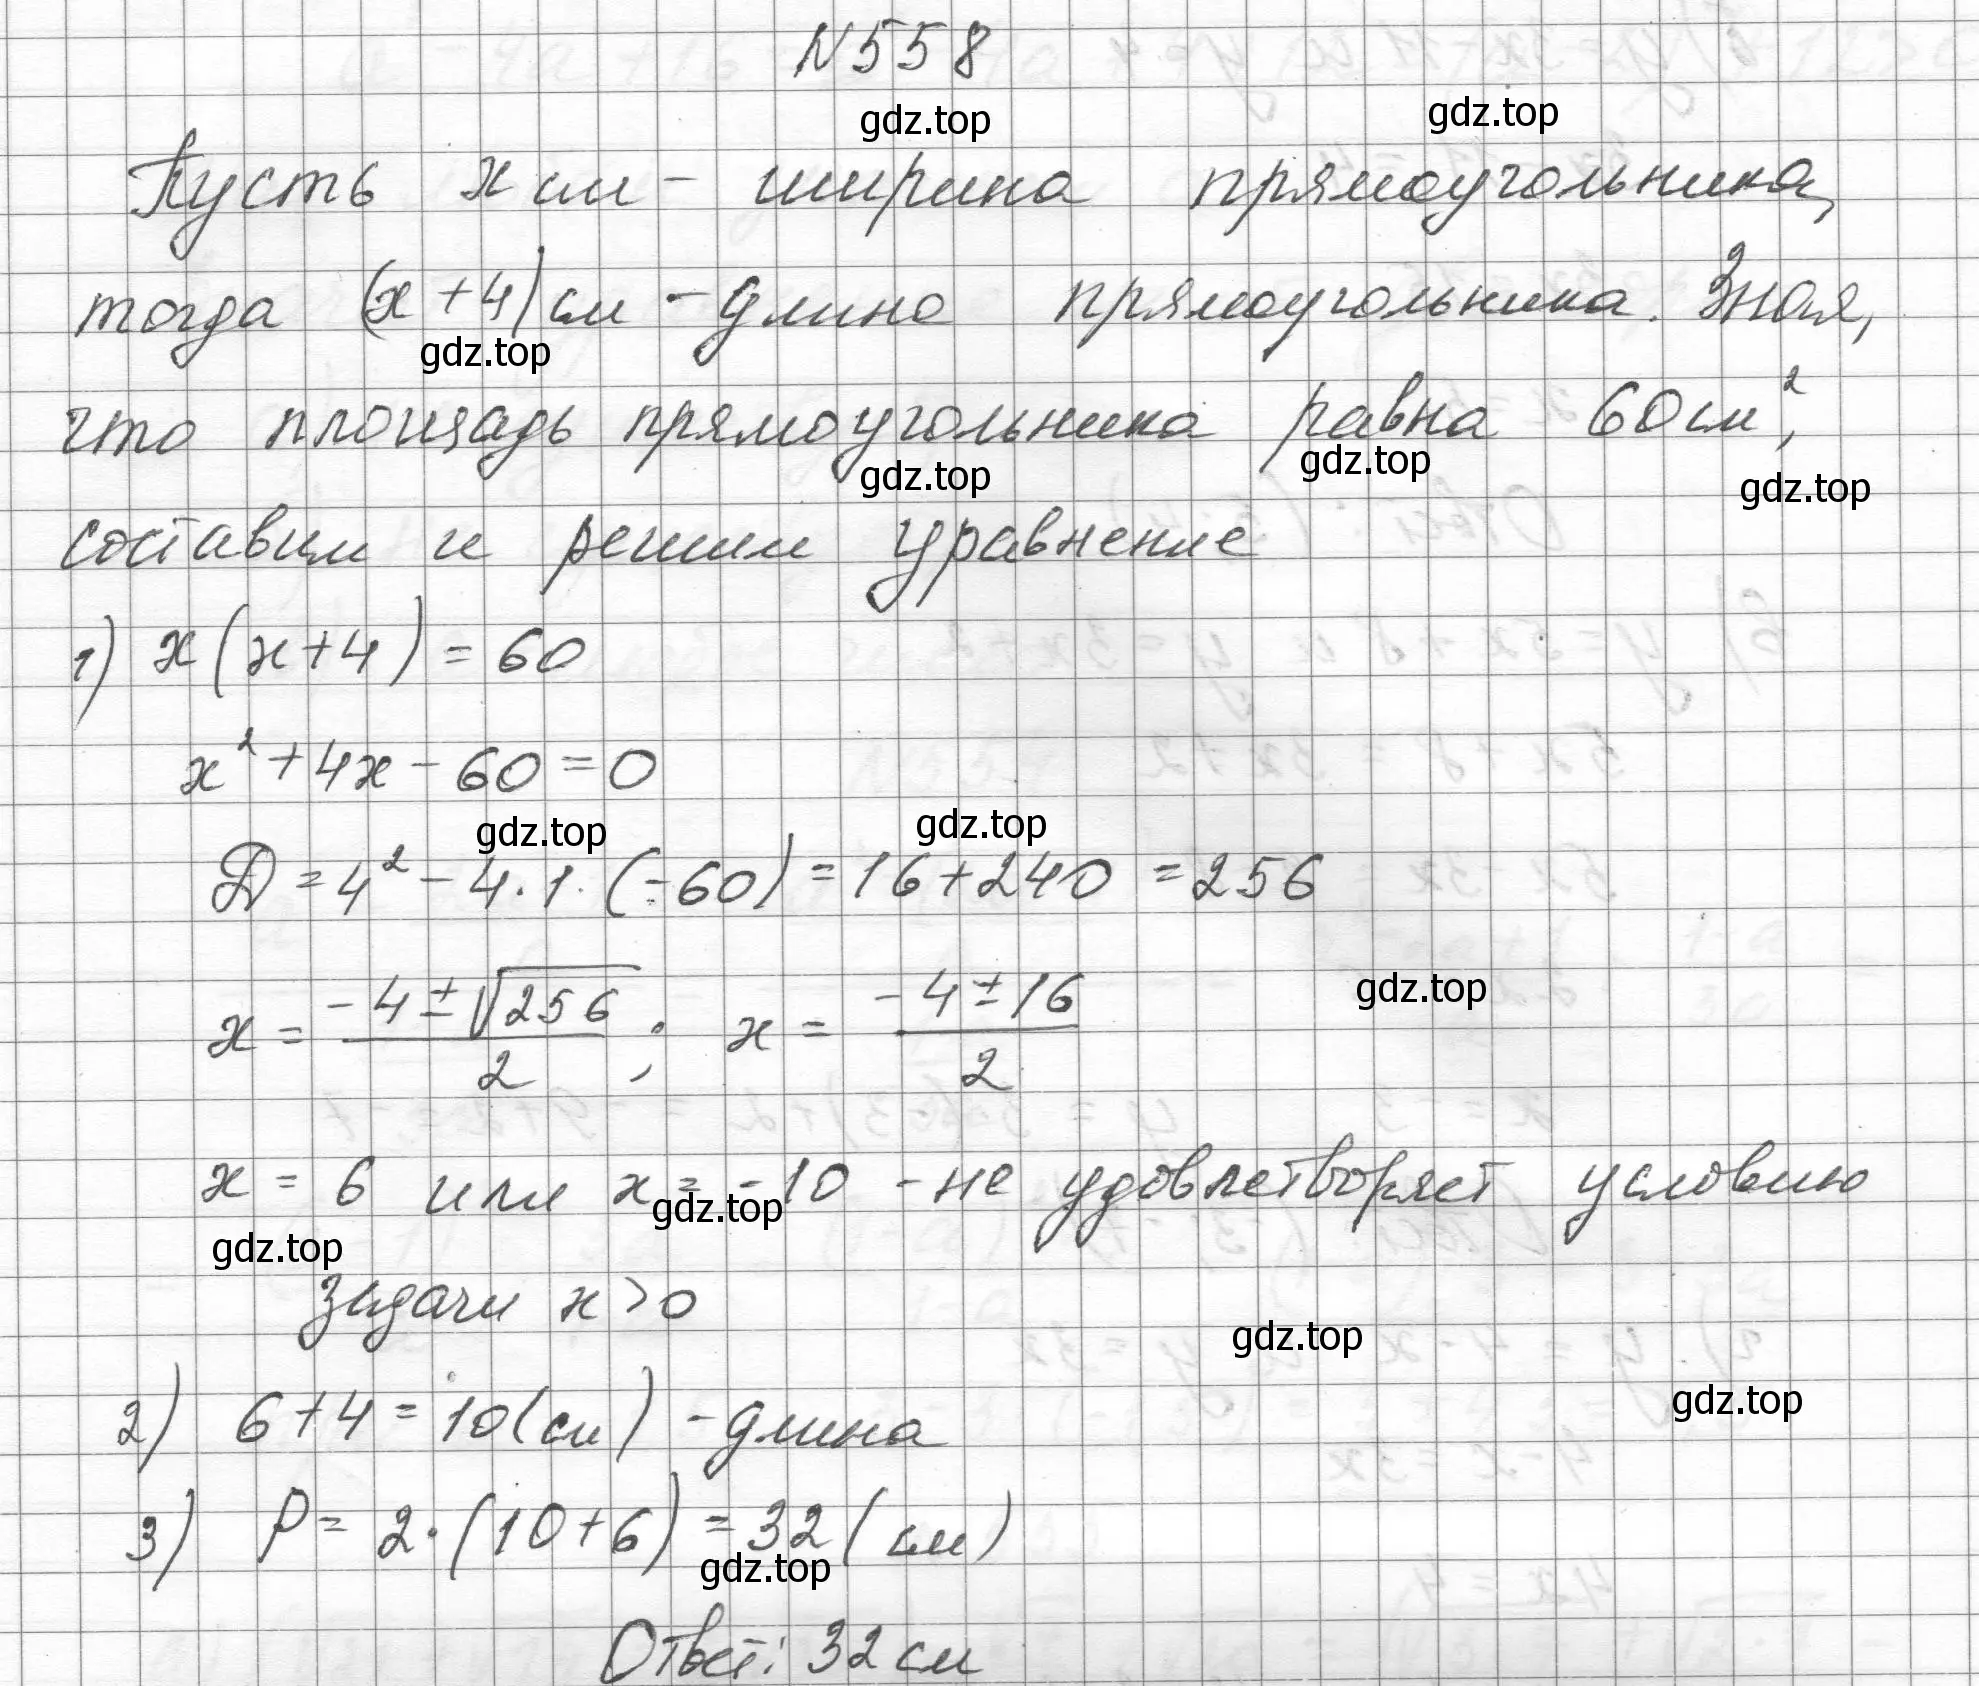 N558
gdz.top
gdz.top
Пусть x см - ширина прямоугольника,
тогда (x+4) см - длина прямоугольника. Зная,
gdz.top
что площадь прямоугольника равна 60 см²,
gdz.top
gdz.top
gdz.top
составим и решим уравнение
1) x(x+4) = 60
x² + 4x - 60 = 0
gdz.top
gdz.top
D = 4² - 4·1·(-60) = 16 + 240 = 256
gdz.top
x = (-4 ± √256)/2; x = (-4 ± 16)/2
x = 6 или x = -10 - не удовлетворяет условию
gdz.top
gdz.top
задачи x > 0
gdz.top
gdz.top
2) 6 + 4 = 10 (см) - длина
3) P = 2·(10+6) = 32 (см)
gdz.top
Ответ: 32 см